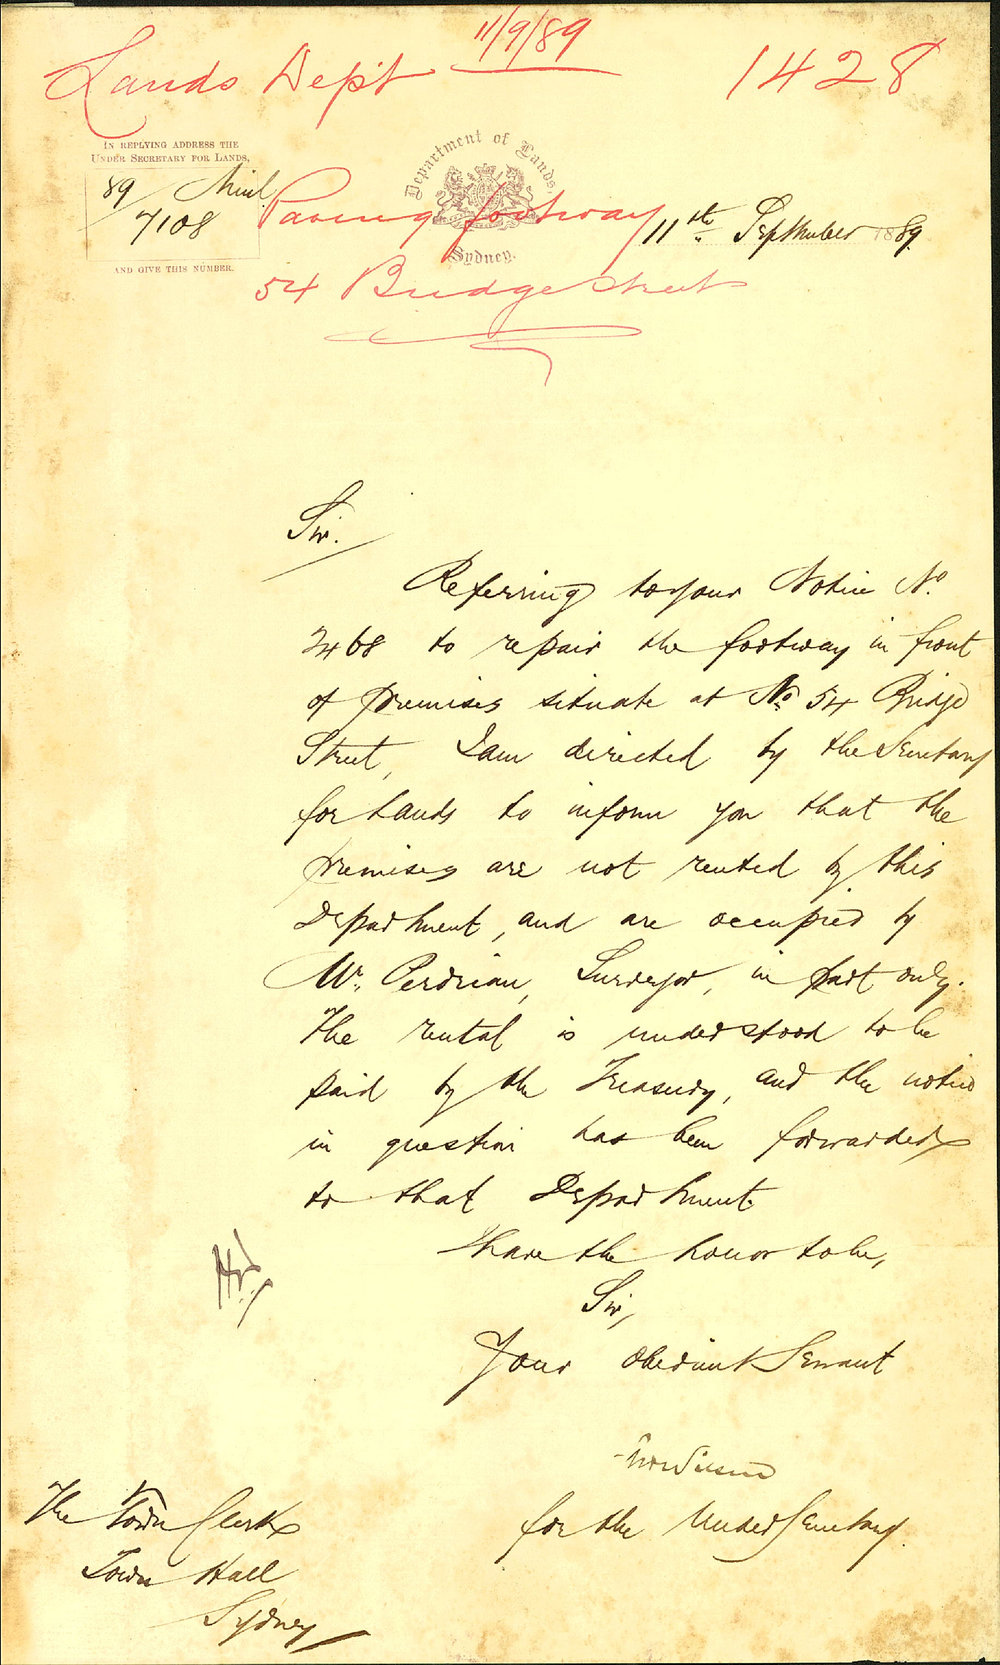 11/9/89
Lands Dept
1428
IN REPLYING ADDRESS THE
UNDER SECRETARY FOR LANDS,
89/
7108
AND GIVE THIS NUMBER.
Department of Lands,
Sydney.
Paving footway
54 Bridge Street
11th September 1889.
Sir.
Referring to your Notice No.
2468 to repair the footway in front
of premises situate at No. 54 Bridge
Street, I am directed by the Secretary
for Lands to inform you that the
premises are not rented by this
Department, and are occupied by
Mr. Perdriau, Surveyor, in part only.
The rental is understood to be
paid by the Treasury, and the notice
in question has been forwarded
to that Department.
I have the honor to be,
Sir,
Your obedient Servant
for the Under Secretary.
The Town Clerk
Town Hall
Sydney